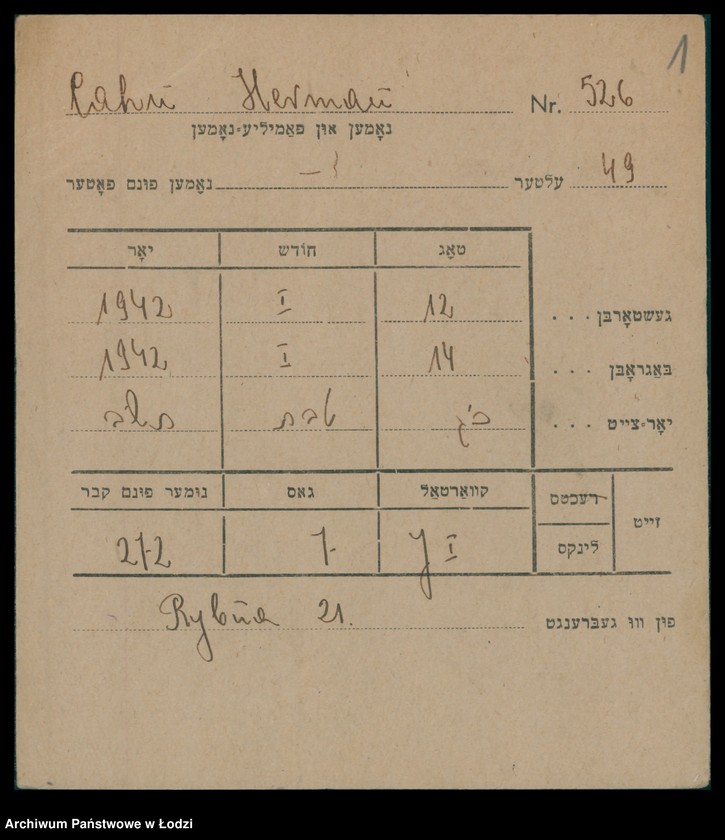 1
Cahn Herman Nr. 526
נאָמען און פאַמיליע־נאָמען
נאָמען פונם פאָטער — עלטער 49
טאָג חודש יאָר
געשטאָרבן . . . 12 I 1942
באַגראָבן . . . 14 I 1942
יאָר־צייט . . . כ״ג טבת תש״ב
זייט רעכטס לינקס קוואַרטאַל גאס נומער פונם קבר
I 7 272
פון וווּ געברענגט Rybna 21.
Archiwum Państwowe w Łodzi